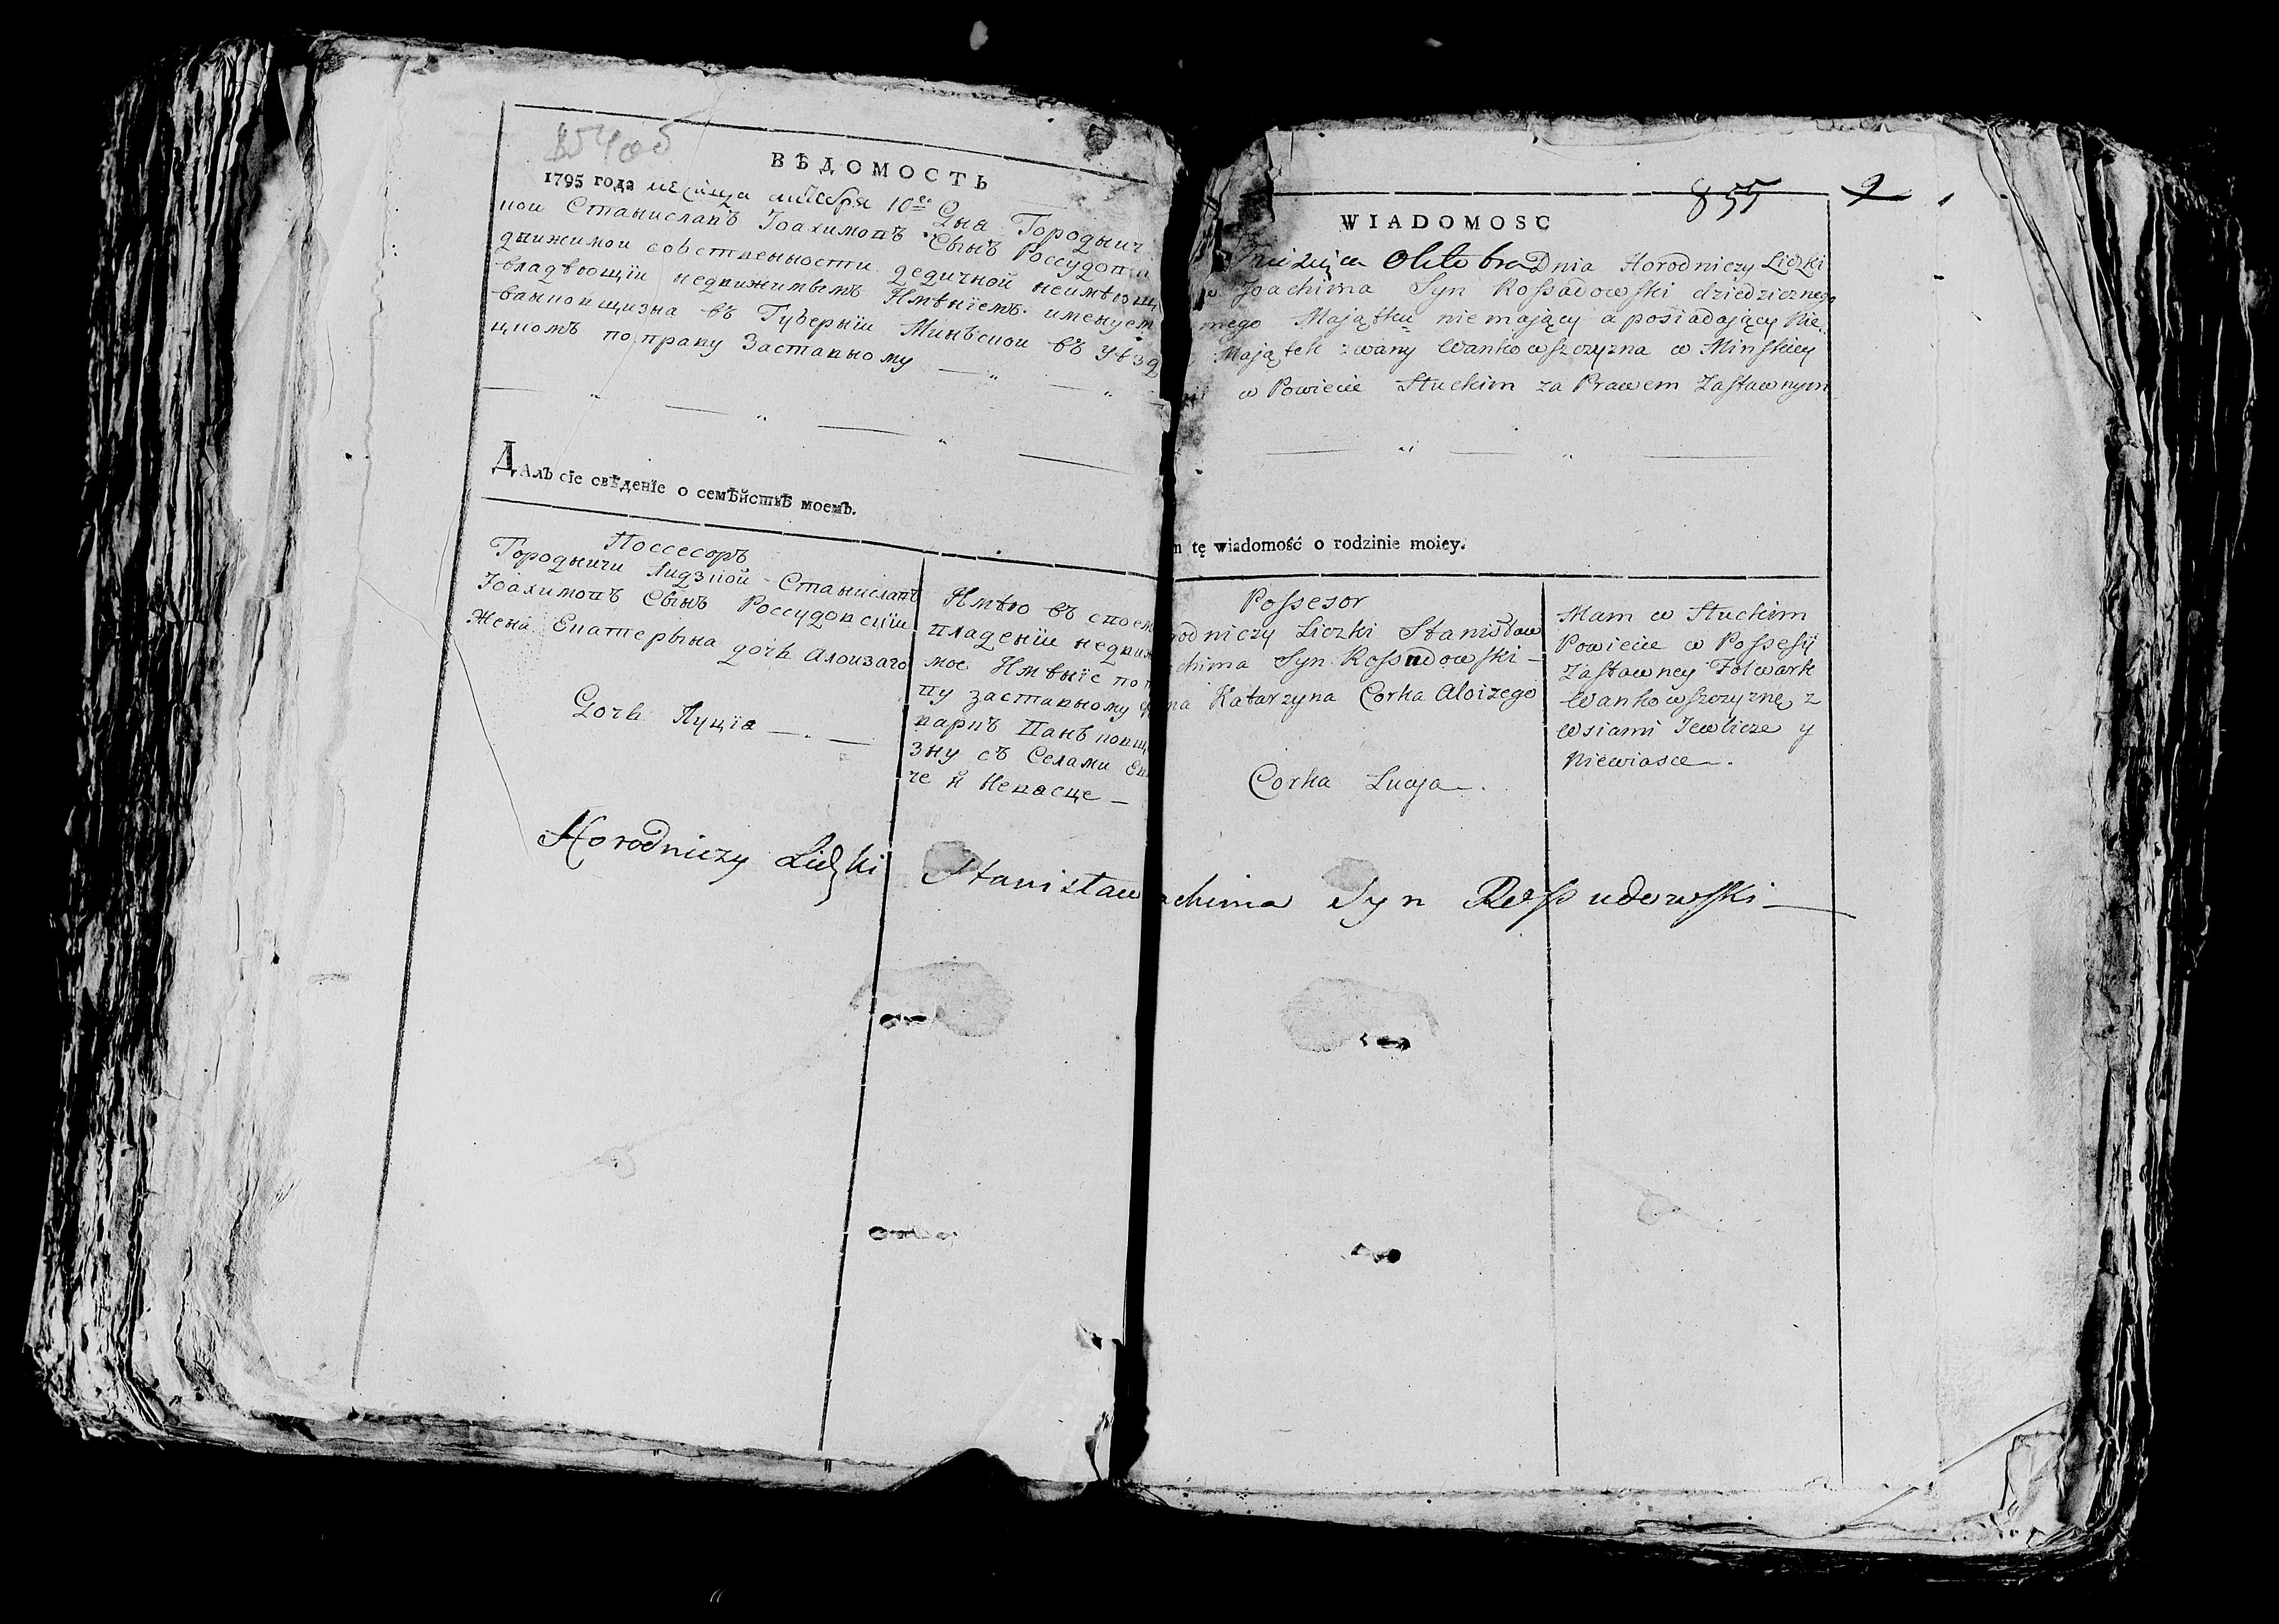 ВѢДОМОСТЬ
1795 года месяца октября 10го Дня Городнич
кои Станиславъ Іоахимовъ Сынъ Россудовск
движимои собственности дедичной неимѣющ
владѣющіи недвижимымъ Имѣніемъ именуем
ванковщизна въ Губерніи Минъской въ Уѣзд
цкомъ по праву Заставному
ДАлъ сіе свѣденіе о семѣйствѣ моемъ.
Поссесоръ
Городничи Лидзкой Станиславъ
Іоахимовъ Сынъ Россудовскіи
Жена Екатерына дочь Алоизаго
Дочь Луціа
Имѣю въ своем
владеніи недвиж
мое Имѣніе по п
ву заставному
варкъ Ванъковщи
зну съ Селами Ев
че и Невасце
Horodniczy Lidzki Stanisław
855
WIADOMOSC
miesięca Oktobra Dnia Horodniczy Lidzki
Joachima Syn Rossudowski dziedzicznego
mego Majątku niemający a posiadający Nie
Majątek zwany Wankowszczyzna w Minskiey
w Powiecie Słuckim za Prawem Zastawnym
m tę wiadomość o rodzinie moiey.
Possesor
rodniczy Liczki Stanisław
chima Syn Rossudowski
na Katarzyna Corka Aloizego
Corka Lucyja
Mam w Słuckim
Powiecie w Possesii
Zastawney Folwark
Wankowszczyznę z
Wsiami Jewlicze y
Niewiasce
achima Syn Rossudowski